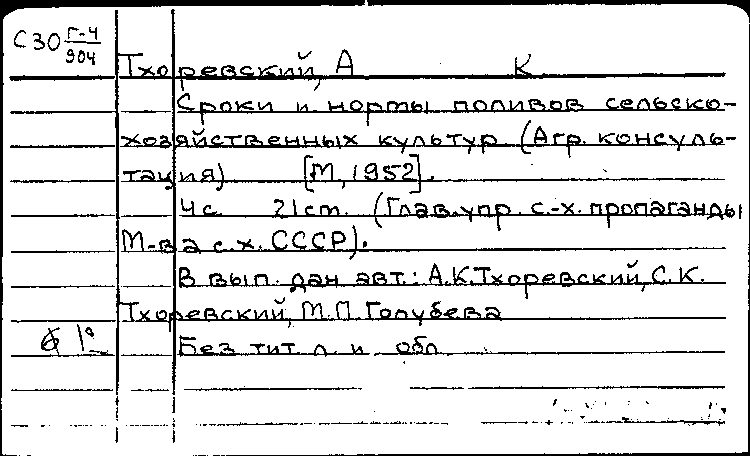 С30 Г-4/904
Тхоревский, А К
Сроки и нормы поливов сельско-
хозяйственных культур (Агр. консуль-
тация) [М, 1952].
4с 21см. (Глав.упр. с.-х. пропаганды
М-ва с.х. СССР).
В вып. дан авт.: А.К.Тхоревский, С.К.
Тхоревский, М.П.Голубева
Без тит л. и обл